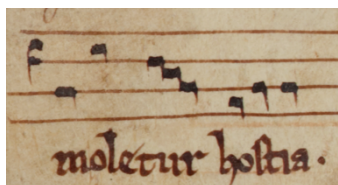 moletur hostia.